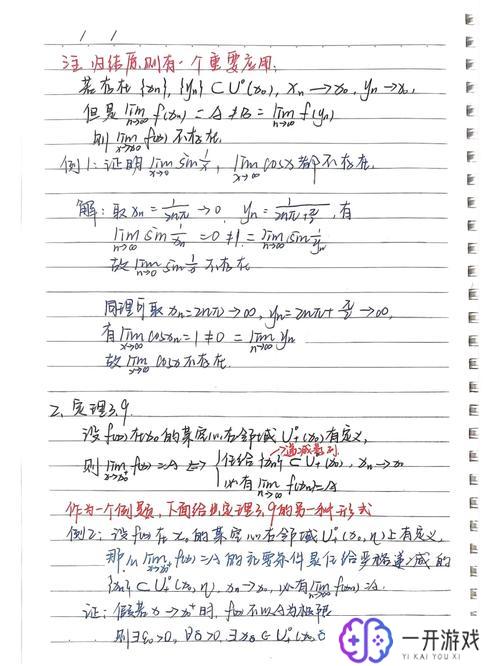 注: 归结原则有一个重要应用:
若存在{xn}, {yn}⊂U°(x0), xn→x0, yn→x0,
但是 lim n→∞ f(xn)=A≠B=lim n→∞ f(yn)
则 lim x→x0 f(x) 不存在.
例1: 证明 lim x→0 sin 1/x, lim x→∞ cosx 都不存在.
解: 取 xn=1/2nπ →0, yn=1/(2nπ+π/2), 有
lim n→∞ sin 1/xn =0≠1=lim n→∞ sin 1/yn
故 lim n→0 sin 1/x 不存在
同理可取 xn=2nπ→∞, yn=2nπ+π/2→∞,
有 lim x→∞ cosxn=1≠0=lim n→∞ yn
故 lim x→∞ cosx 不存在.
2. 定理3.9
设f(x)在x0的某空心右邻域U°+(x0)有定义,
→递减数列
则 lim x→x0+ f(x)=A ⇔ {任给{xn}⊂U°+(x0), xn→x0
必有 lim n→∞ f(xn)=A
作为一个例题,下面给出定理3.9的另一种形式
例2: 设f(x)在x0的某空心右邻域U°+(x0,η)上有定义,
那么 lim x→x0+ f(x)=A的充要条件是任给严格递减的
{xn}⊂U°+(x0,η), xn→x0, 必有 lim n→∞ f(xn)=A.
证: 假若x→x0+时, f(x)不以A为极限
则∃ε0>0, ∀δ>0, ∃xδ∈U°+(x0
一开游戏
YI KAI YOU XI